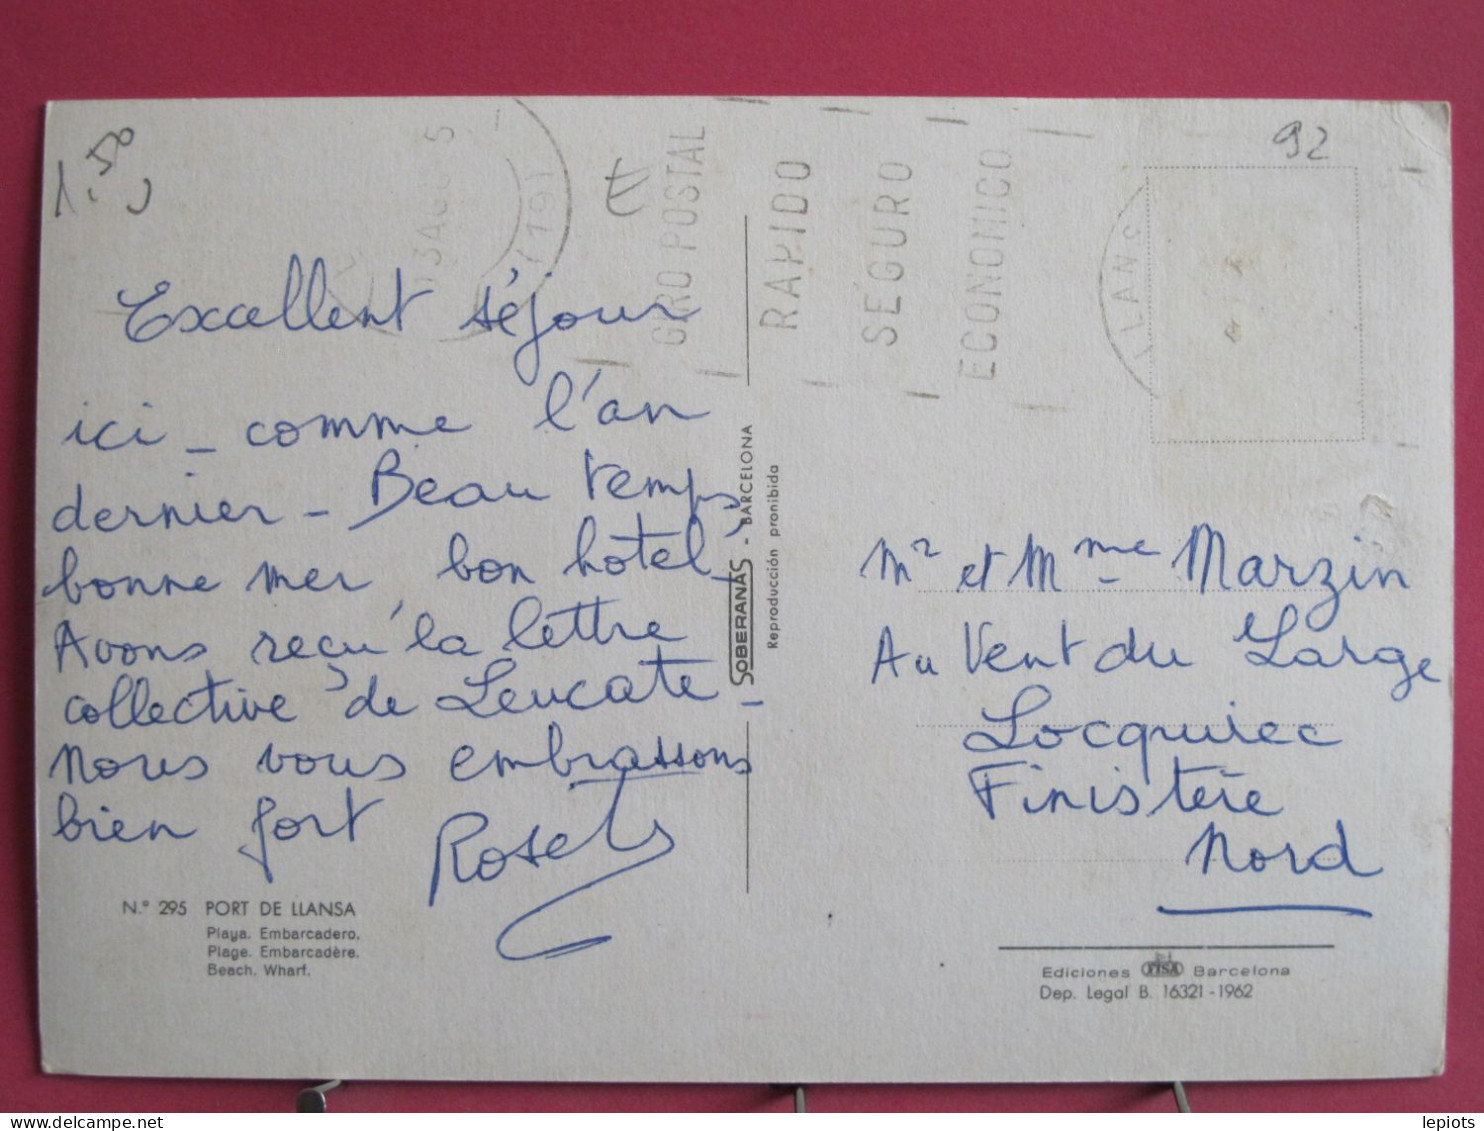 1.50
€
92
13 AGO 5
(19)
GIRO POSTAL
RAPIDO
SEGURO
ECONOMICO
LLANS
Excellent séjour
ici - comme l'an
dernier - Beau temps,
bonne mer, bon hotel -
Avons reçu la lettre
collective de Leucate -
Nous vous embrassons
bien fort
N.º 295 PORT DE LLANSA
Playa. Embarcadero.
Plage. Embarcadère.
Beach. Wharf.
SOBERANAS - BARCELONA
Reproducción prohibida
Mr et Mme Marzin
Au Vent du Large
Locquirec
Finistère
Nord
Ediciones FISA Barcelona
Dep. Legal B. 16321 - 1962
lepiots